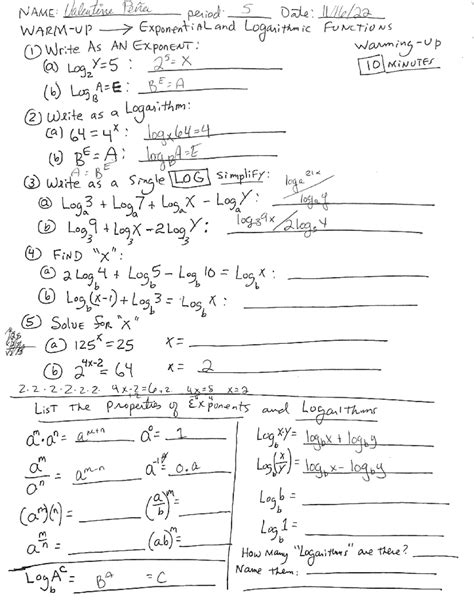 NAME: Valentina period: 5 Date: 11/16/22
WARM-UP → Exponential and Logarithmic Functions
Warming-Up
10 MINUTES
① Write As AN Exponent:
(a) Log₂Y=5 : 2⁵=X
(b) Log_B A=E: B^E=A
② Write as a Logarithm:
(a) 64=4^x: log_x64=4
(b) B^E=A: log_B A=E
A=B^E
③ Write as a Single LOG Simplify:
(a) Log_a 3 + Log_a 7 + Log_a X - Log_a Y: log_a 21x / log_a y
(b) Log₃9 + Log₃X - 2Log₃Y: log₃9x / 2log₃Y
④ FIND "X":
(a) 2Log_b 4 + Log_b 5 - Log_b 10 = Log_b X:
(b) Log_b(x-1) + Log_b 3 = Log_b X:
⑤ Solve for "X"
(a) 125^x=25 X=
(b) 2^(4x-2)=64 X= 2
2·2·2·2·2·2 4x-2=6+2 4x=8 x=2
List The Properties of Exponents and Logarithms
a^m·a^n= a^(m+n) a⁰= 1
a^m/a^n = a^(m-n)
(a^m)(n)= (a/b)^m=
(ab)^m=
Log_b A^C= =C
Log_b X·Y= log_b x + log_b y
Log_b(x/y)= log_b x - log_b y
Log_b b=
Log_b 1=
How Many "Logarithms" are there?
Name them: